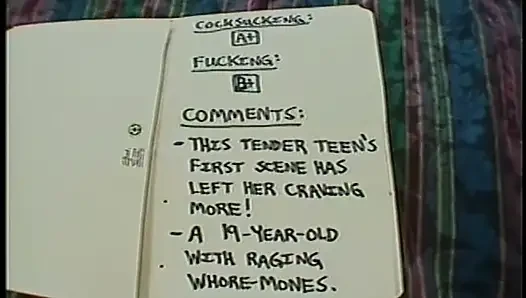 COCKSUCKING:
A+
FUCKING:
B+
COMMENTS:
- THIS TENDER TEEN'S
FIRST SCENE HAS
LEFT HER CRAVING
MORE!
- A 19-YEAR-OLD
WITH RAGING
WHORE-MONES.